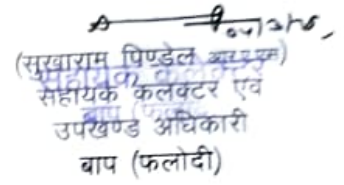 (सुखाराम पिण्डेल आर ए एस)
सहायक कलक्टर एवं
उपखण्ड अधिकारी
बाप (फलोदी)